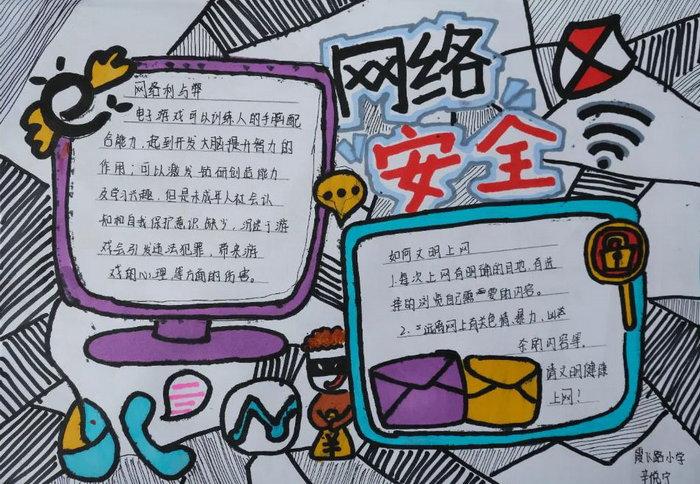 网络
安全
网络利与弊
电子游戏可以训练人的手脑配
合能力，起到开发大脑提升智力的
作用；可以激发钻研创造能力
及学习兴趣，但是未成年人社会认
知和自我保护意识缺少，沉迷于游
戏会引发违法犯罪，带来游
戏的心理等方面的伤害。
如何文明上网
1.每次上网有明确的目地，有选
择的浏览自己需要的内容。
2.远离网上有关色情、暴力、凶杀
等内容
请文明健康
上网！
霞飞路小学
辛悦宁